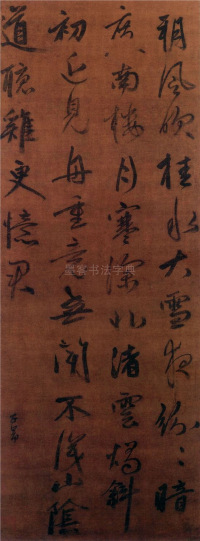 朔風吹桂水大雪夜紛〻暗
度南樓月寒深北渚雲燭斜
初近見舟重竟無聞不識山陰
道聽雞更憶君
书法字典